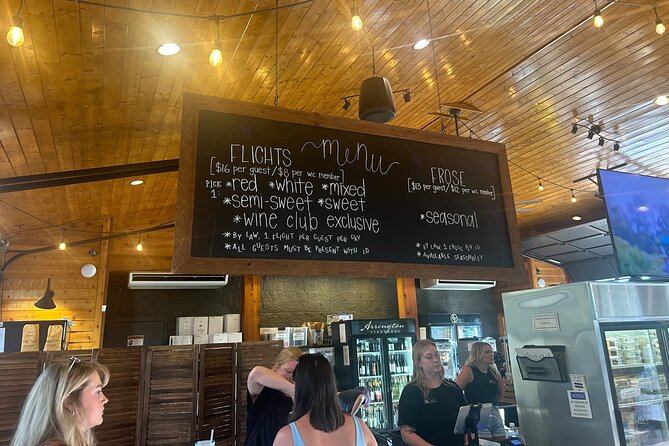 menu
FLIGHTS
[$16 per guest/$8 per wc member]
PICK 1:
*red *white *mixed
*semi-sweet *sweet
*wine club exclusive
*BY LAW, 1 FLIGHT PER GUEST PER DAY
*ALL GUESTS MUST BE PRESENT WITH ID
FROSE
[$13 per guest/$12 per wc member]
*seasonal
*BY LAW 1 FROSE PER ID
*AVAILABLE SEASONALLY
Arrington
VINEYARDS
NOTICE